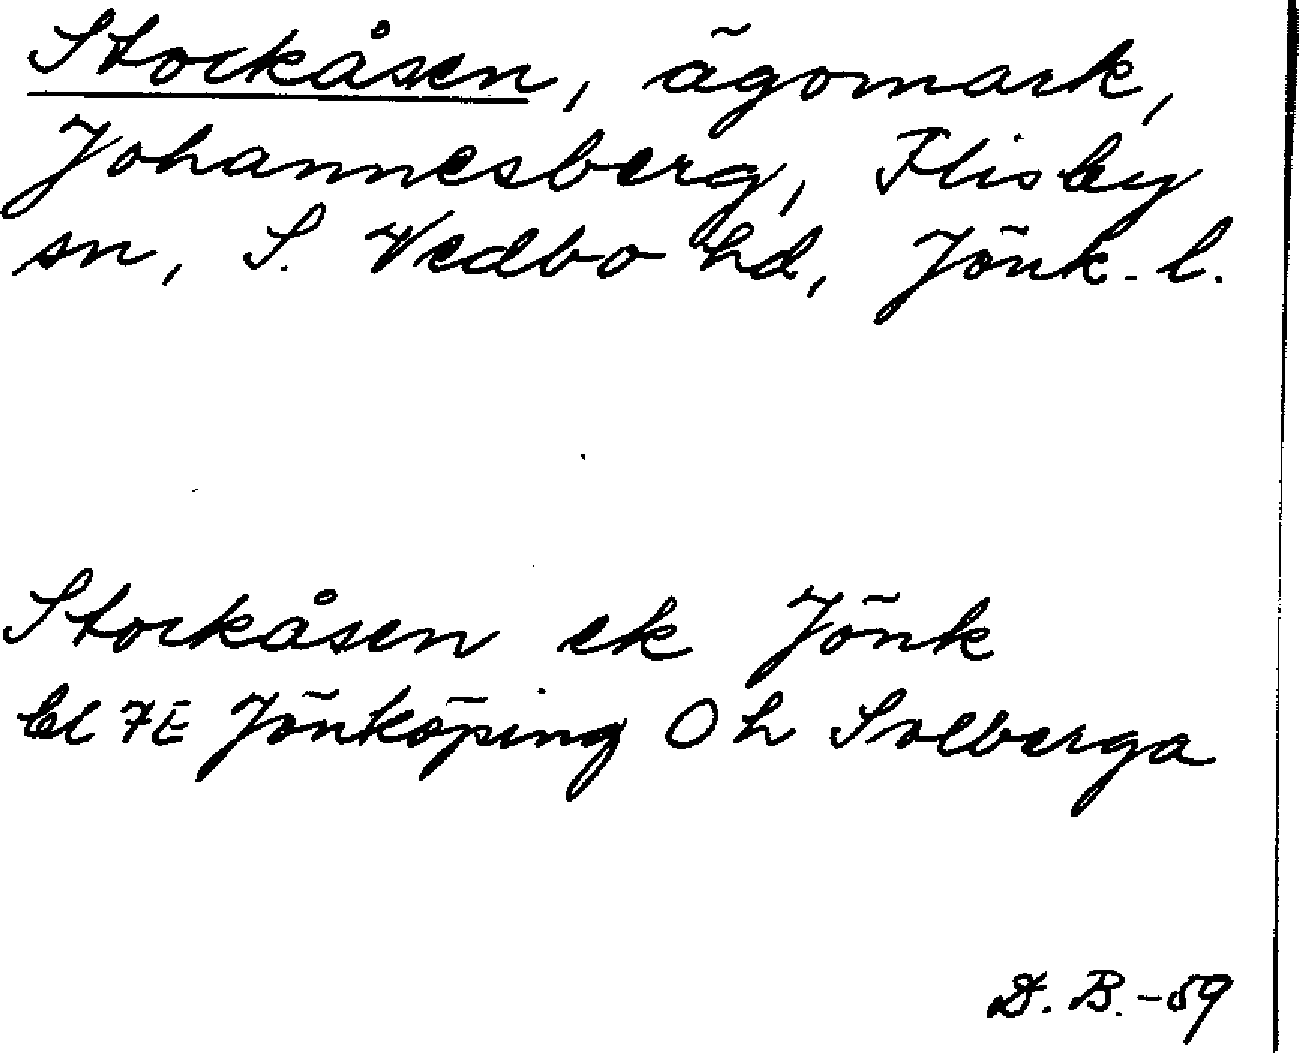 Stockåsen, ägomark,
Johannesberg, Flisby
sn, S. Vedbo hd, Jönk. l.
Stockåsen ek Jönk
bl 7E Jönköping Öh Solberga
D. B. -59